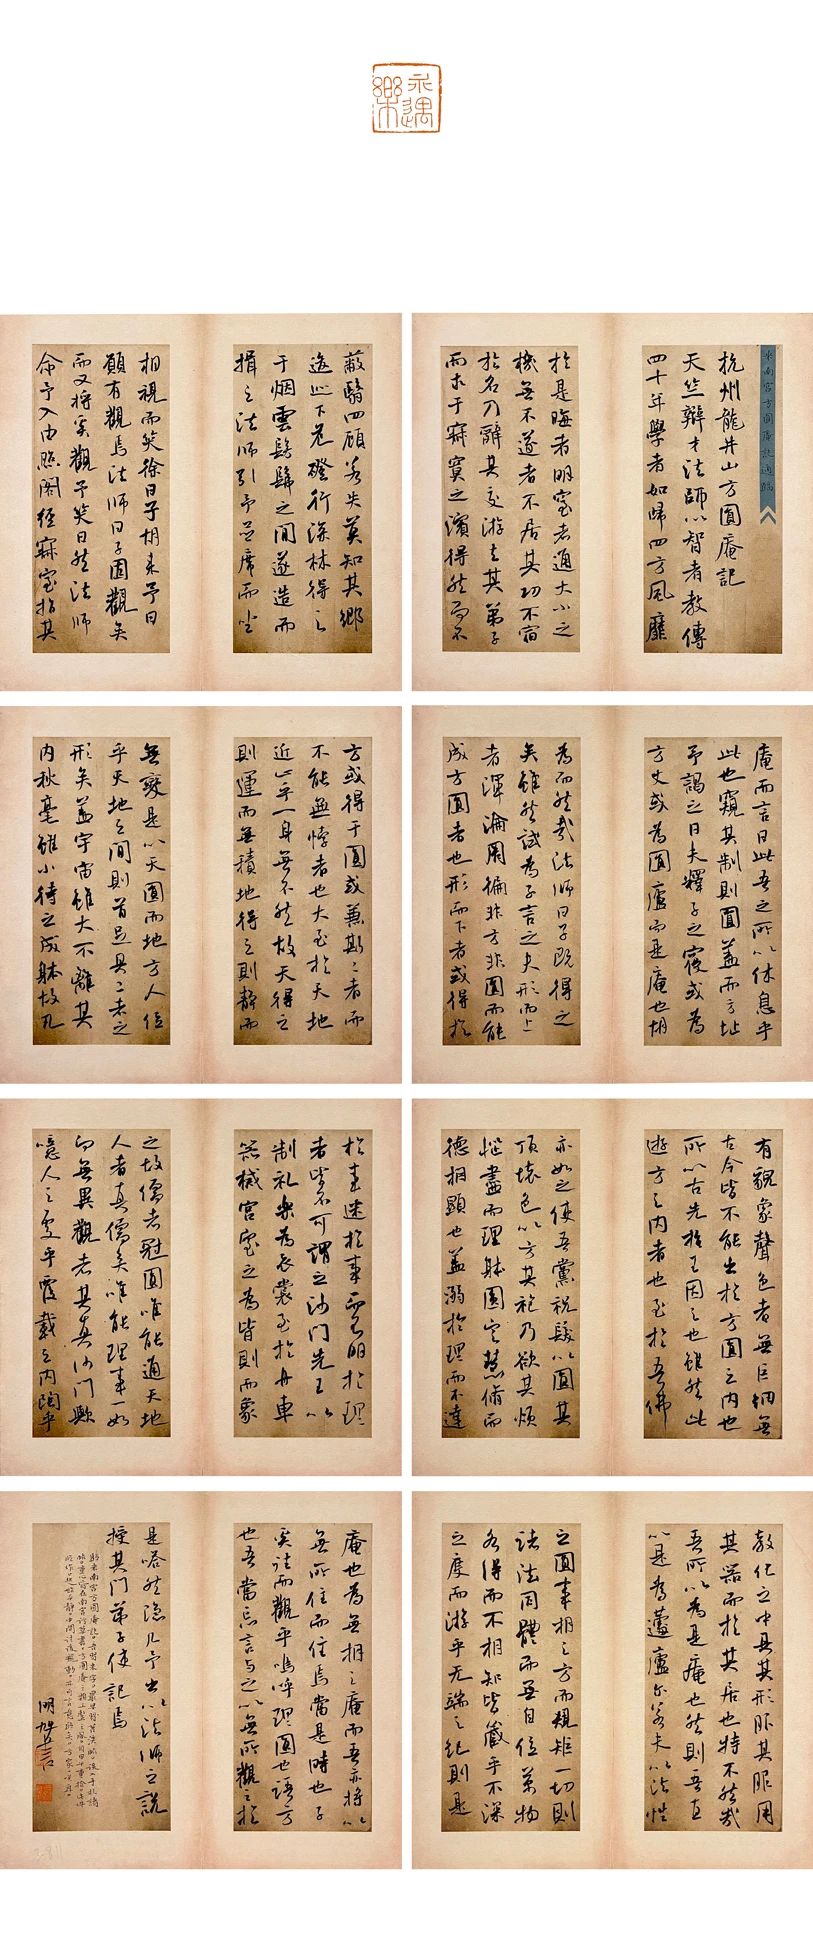 永遇樂
米南宮方圓庵記通臨
杭州龍井山方圓庵記
天竺辯才法師以智者教傳
四十年學者如歸四方風靡
於是晦者明窒者通大小之
機無不遂者不居其功不宿
於名乃辭其交遊去其弟子
而求于寂寞之濱得龍井之
蔽翳四顧若失莫知其鄉
逡巡下危磴行深林得之
于烟雲髣髴之間遂造而
揖之法師引予並席而坐
相視而笑徐曰子胡來予曰
願有觀焉法師曰子固觀矣
而又將奚觀予笑曰然法師
命予入由照閣經寂室指其
庵而言曰此吾之所以休息乎
此也窺其制則圓蓋而方址
予謁之曰夫釋子之寢或為
方丈或為圓廬而是庵也胡
為而然哉法師曰子既得之
矣雖然試為子言之夫形而上
者渾淪周徧非方非圓而能
成方圓者也形而下者或得於
方或得于圓或兼斯二者而
不能無悖者也大至於天地
近止乎一身無不然故天得之
則運而無積地得之則靜而
無變是以天圓而地方人位
乎天地之間則首足具二者之
形矣蓋宇宙雖大不離其
内秋毫雖小待之成躰故凡
有貌象聲色者無巨細無
古今皆不能出於方圓之内也
所以古先哲王因之也雖然此
遊方之内者也至於吾佛
亦如之使吾黨祝髮以圓其
頂壞色以方其袍乃欲其煩
惱盡而理躰圓定慧脩而
德相顯也蓋溺於理而不達
於事迷於事而不明於理
者皆不可謂之沙門先王以
制礼樂為衣裳至於舟車
器械宮室之為皆則而象
之故儒者冠圓唯能通天地
人者真儒矣唯能理事一如
向無異觀者其真沙門歟
噫人之處乎覆載之内陶乎
教化之中具其形服其服用
其器而於其居也特不然哉
吾所以為是庵也然則吾直
以是為蘧廬尔若夫以法性
之圓事相之方而規矩一切則
諸法同體而無自位萬物
各得而不相知皆藏乎不深
之度而游乎无端之紀則是
庵也為無相之庵而吾亦將以
無所住而住焉當是時也子
奚往而觀乎嗚呼理圓也語方
也吾當忘言与之以無所觀之於
是嗒然隱几予出以法師之說
授其門弟子使記焉